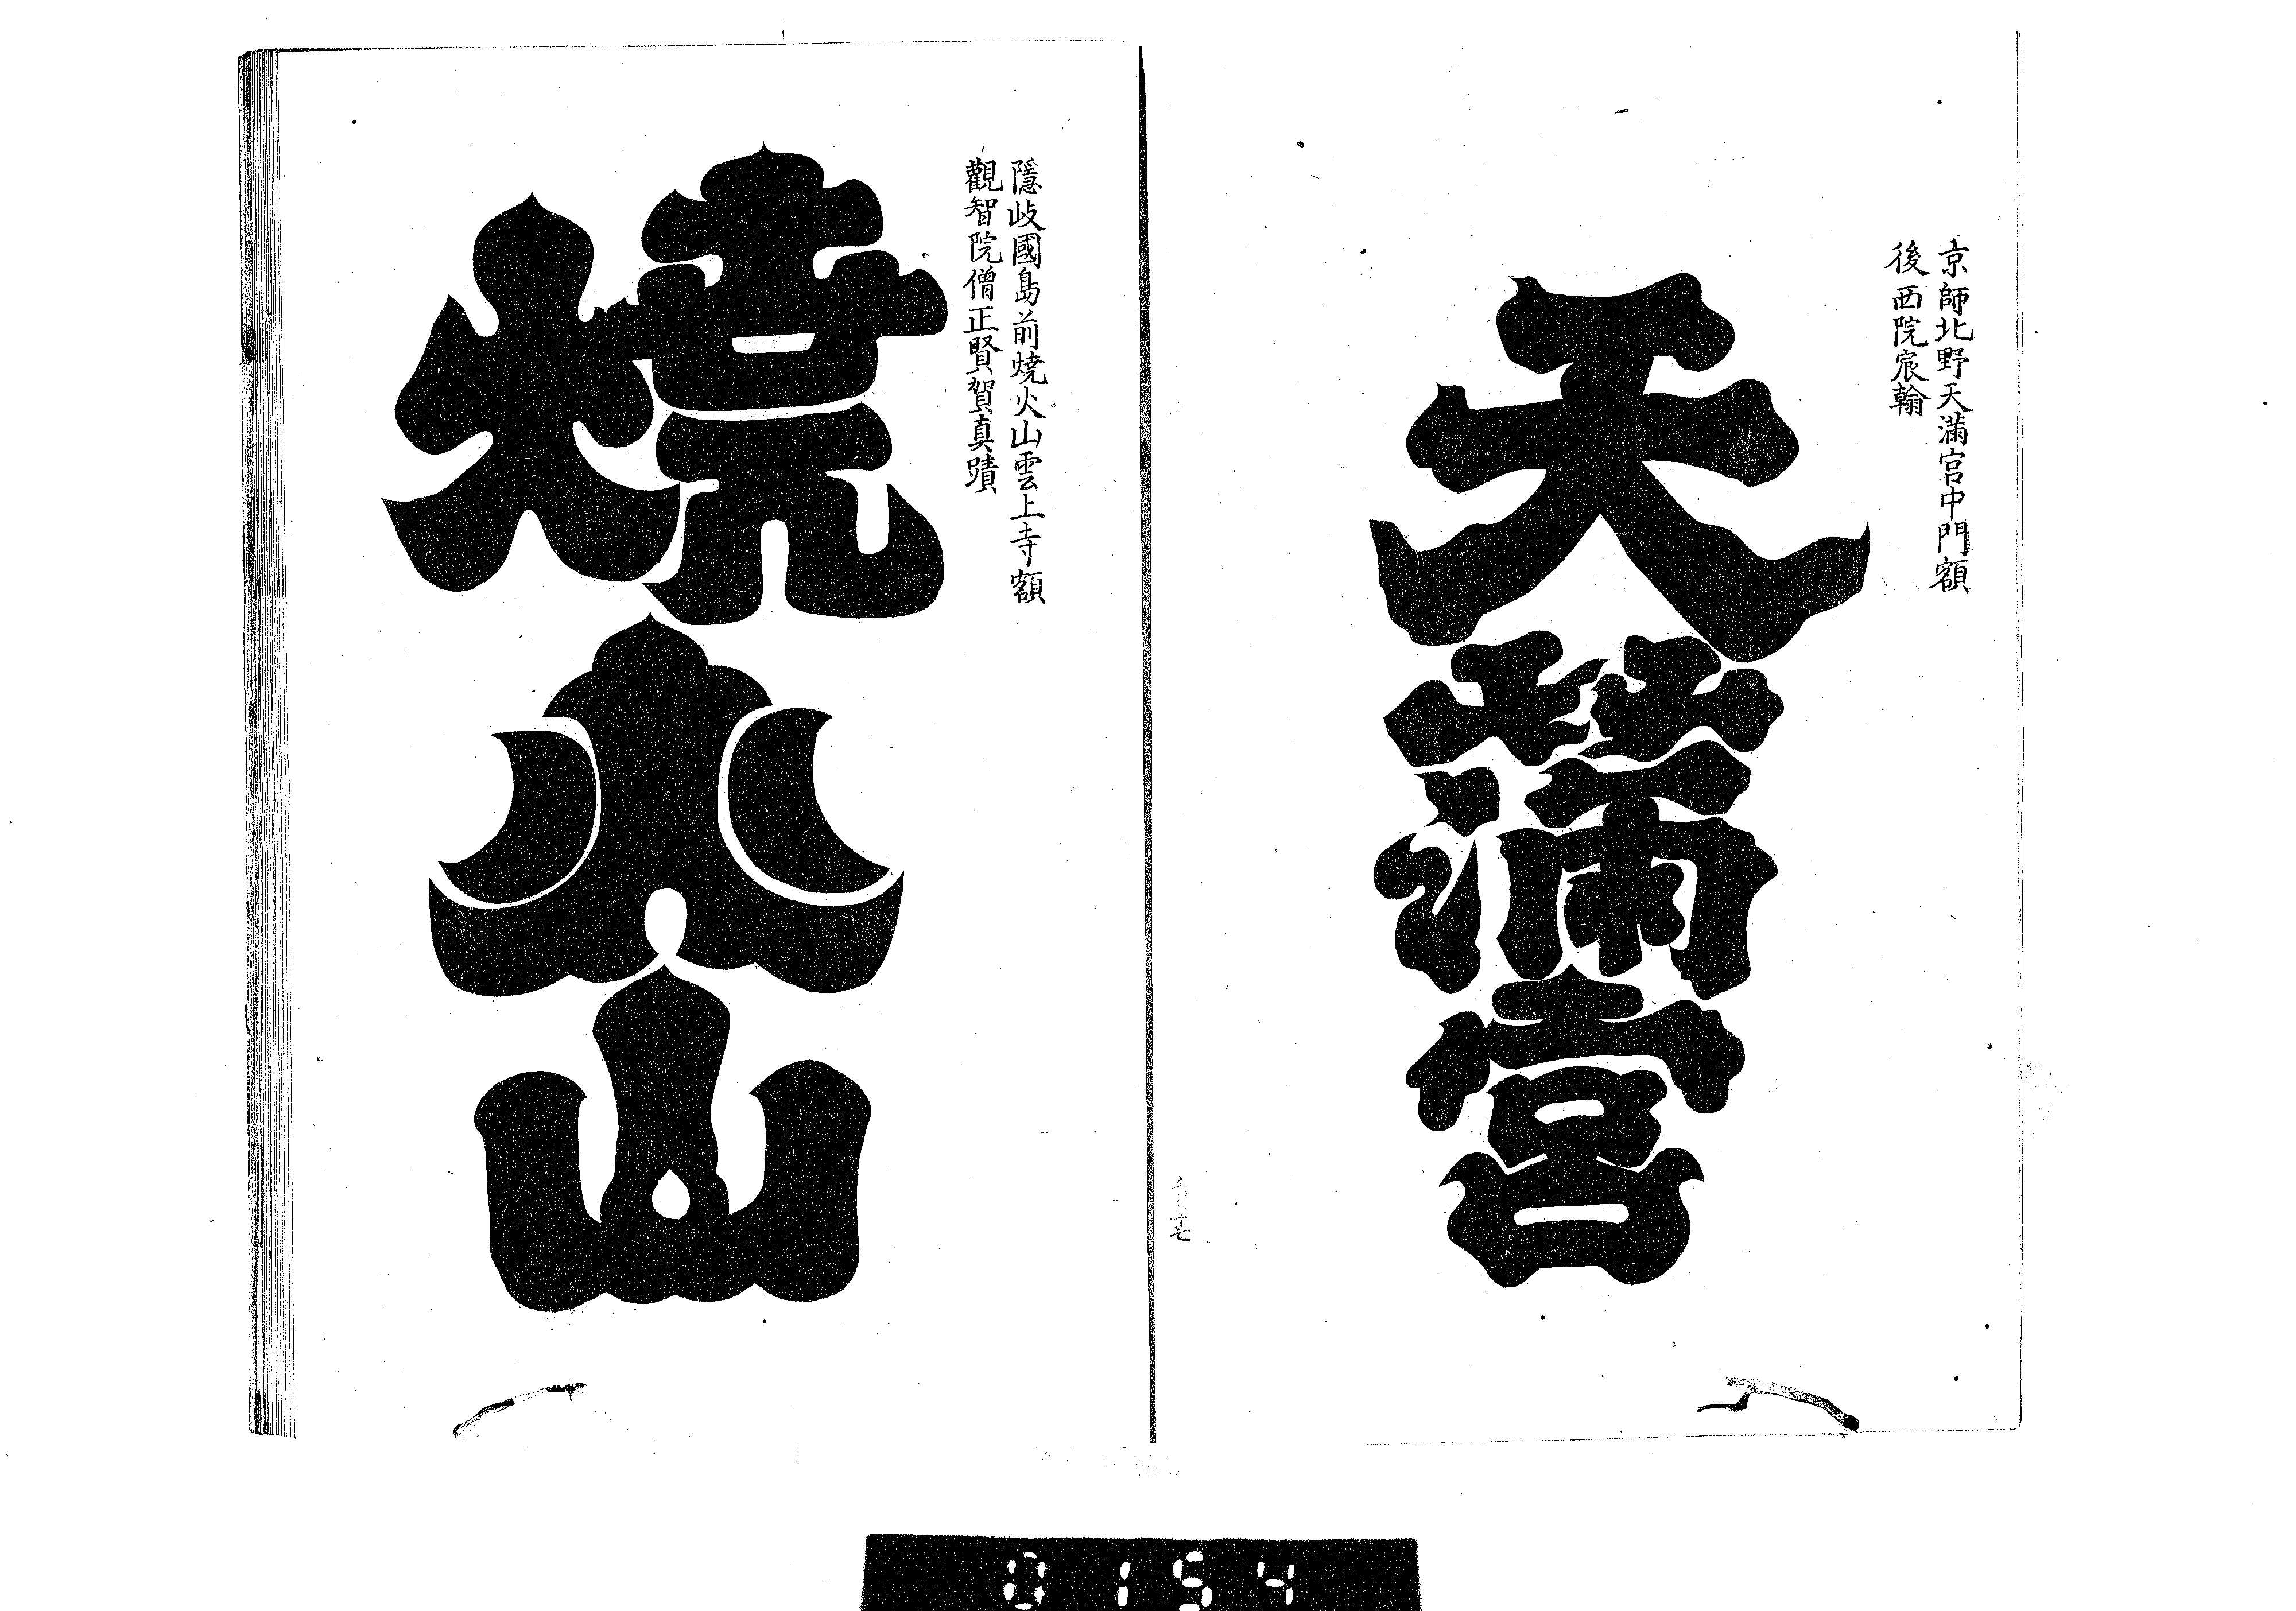 京師北野天滿宮中門額
後西院宸翰
天
滿
宮
隱岐國島前燒火山雲上寺額
觀智院僧正賢賀真蹟
燒
火
山
0154